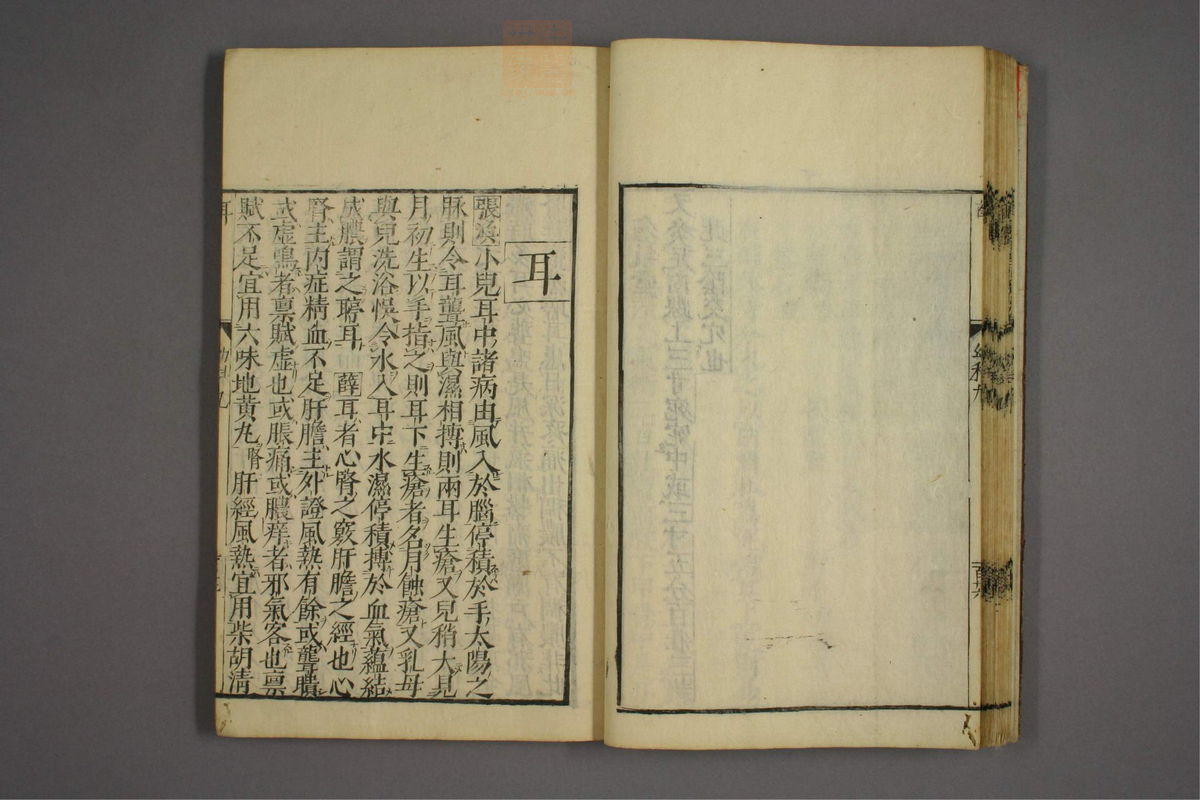 耳
張渙小兒耳中諸病由風入於腦停積於手太陽之
脉則令耳聾風與濕相搏則兩耳生瘡又兒稍大見
月初生以手指之則耳下生瘡者名月蝕瘡又乳母
與兒洗浴悞令水入耳中水濕停積搏於血氣蘊結
成膿謂之聤耳 薛耳者心腎之竅肝膽之經也心
腎主内症精血不足肝膽主外證風熱有餘或聾聵
或虛鳴者禀賦虛也或脹痛或膿痒者邪氣客也禀
賦不足宜用六味地黄丸腎肝經風熱宜用柴胡清